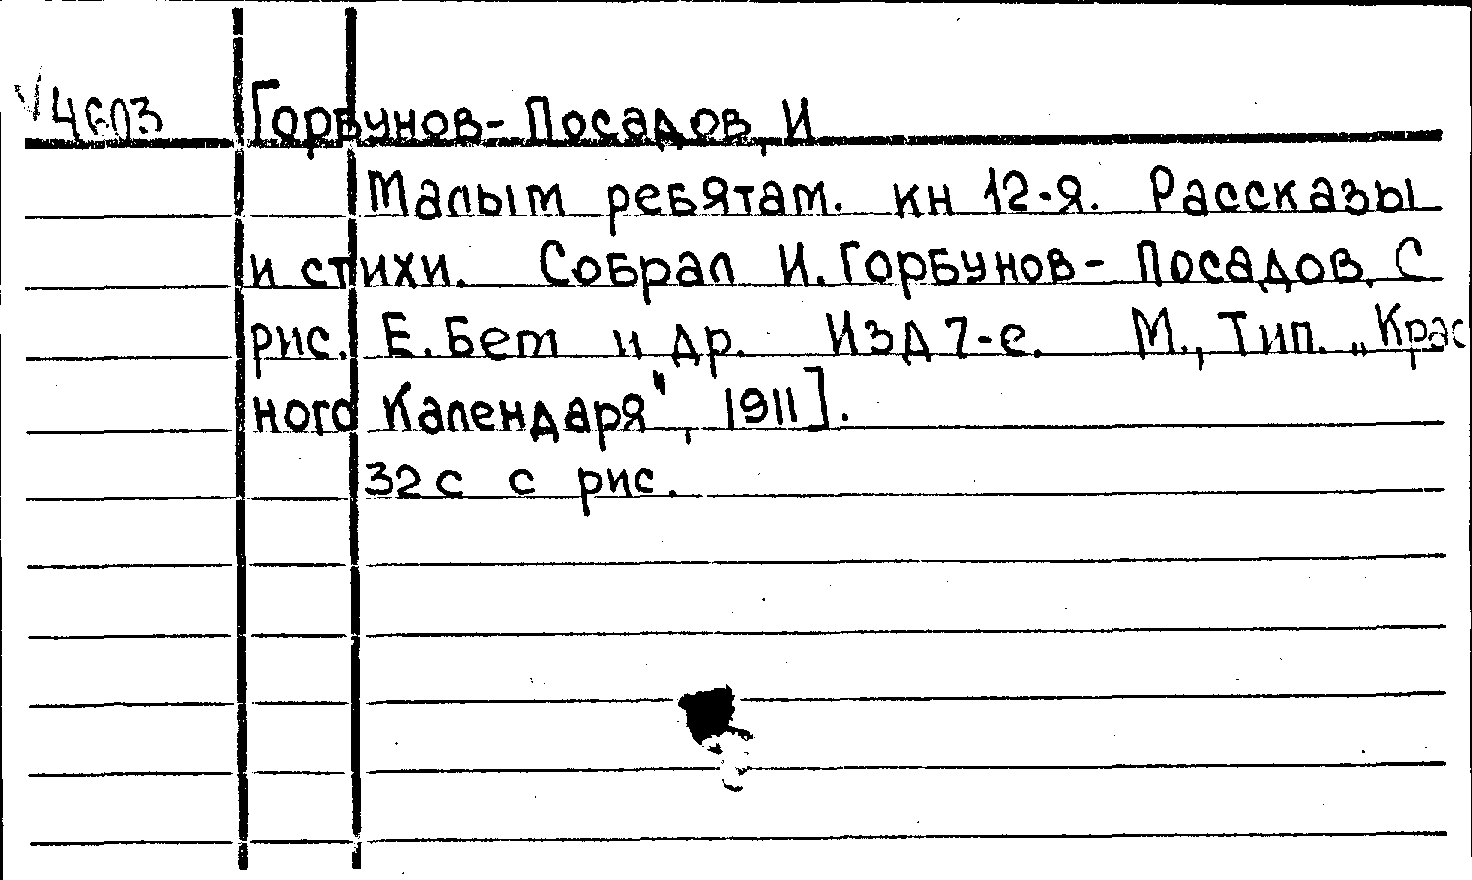 V4603 Горбунов-Посадов, И
Малым ребятам. кн 12-я. Рассказы
и стихи. Собрал И. Горбунов-Посадов. С
рис. Е. Бем и др. Изд 7-е. М., Тип. „Крас
ного Календаря", 1911].
32 с с рис.